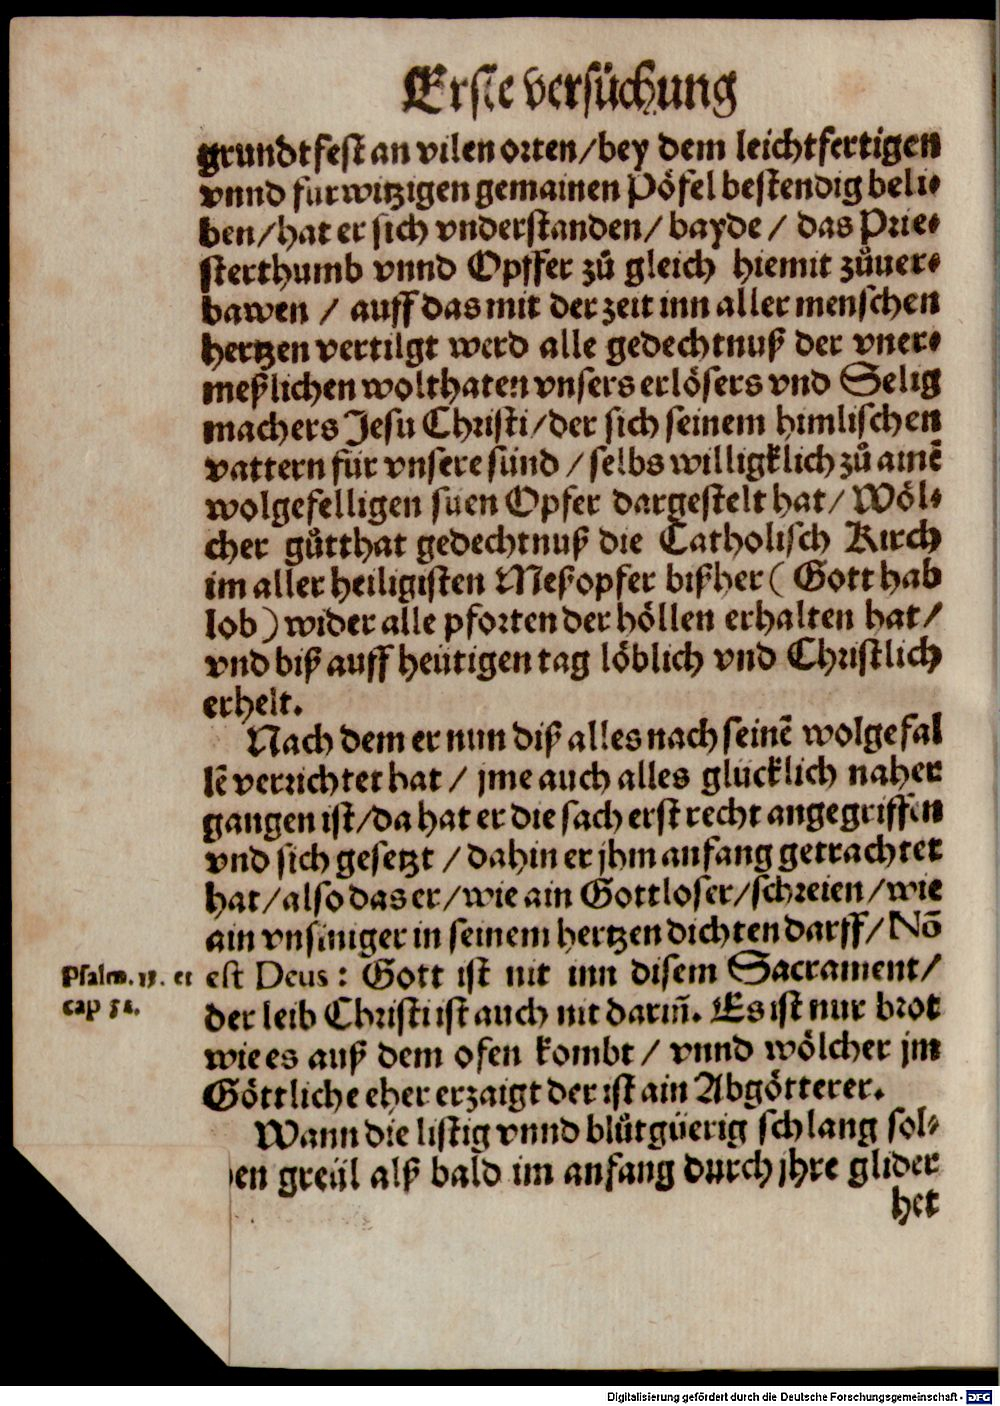 Erste versuͤchung
grundtfest an vilen orten/bey dem leichtfertigen
vnnd furwitzigen gemainen Pöfel bestendig beli-
ben/hat er sich vnderstanden/ bayde / das Prie-
sterthumb vnnd Opffer zů gleich hiemit zůuer-
bawen / auff das mit der zeit inn aller menschen
hertzen vertilgt werd alle gedechtnuß der vner-
meßlichen wolthaten vnsers erlösers vnd Selig
machers Jesu Christi/der sich seinem himlischen
vattern für vnsere sünd / selbs willigklich zů ainē
wolgefelligen süen Opfer dargestelt hat/ Wöl-
cher gůtthat gedechtnuß die Catholisch Kirch
im aller heiligisten Meßopfer bißher ( Gott hab
lob ) wider alle pforten der höllen erhalten hat/
vnd biß auff heütigen tag löblich vnd Christlich
erhelt.
Nach dem er nun diß alles nach seinē wolgefal
lē verrichtet hat / jme auch alles glücklich naher
gangen ist/da hat er die sach erst recht angegriffen
vnd sich gesetzt / dahin er jhm anfang getrachtet
hat/also das er/wie ain Gottloser/schreien/wie
ain vnsiniger in seinem hertzen dichten darff/ Nō
Psalm. 13. et
cap 52.
est Deus: Gott ist nit inn disem Sacrament/
der leib Christi ist auch nit darin̄. Es ist nur brot
wie es auß dem ofen kombt / vnnd wölcher jm
Göttliche eher erzaigt der ist ain Abgötterer.
Wann die listig vnnd blůtgüerig schlang sol-
en greül alß bald im anfang durch jhre glider
het
Digitalisierung gefördert durch die Deutsche Forschungsgemeinschaft - DFG